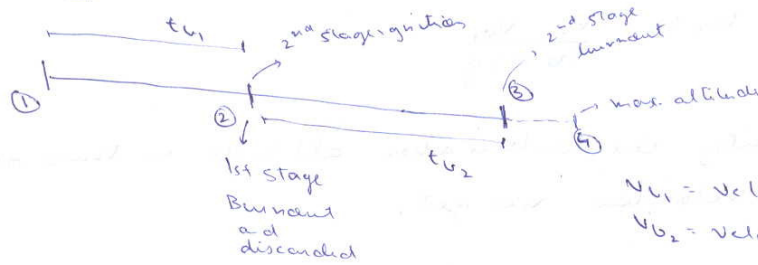 t_b1
2nd stage ignition
2nd stage
burnout
①
②
③
④
max. altitude
t_b2
1st stage
Burnout
and
discarded
V_b1 = Vel
V_b2 = Vel